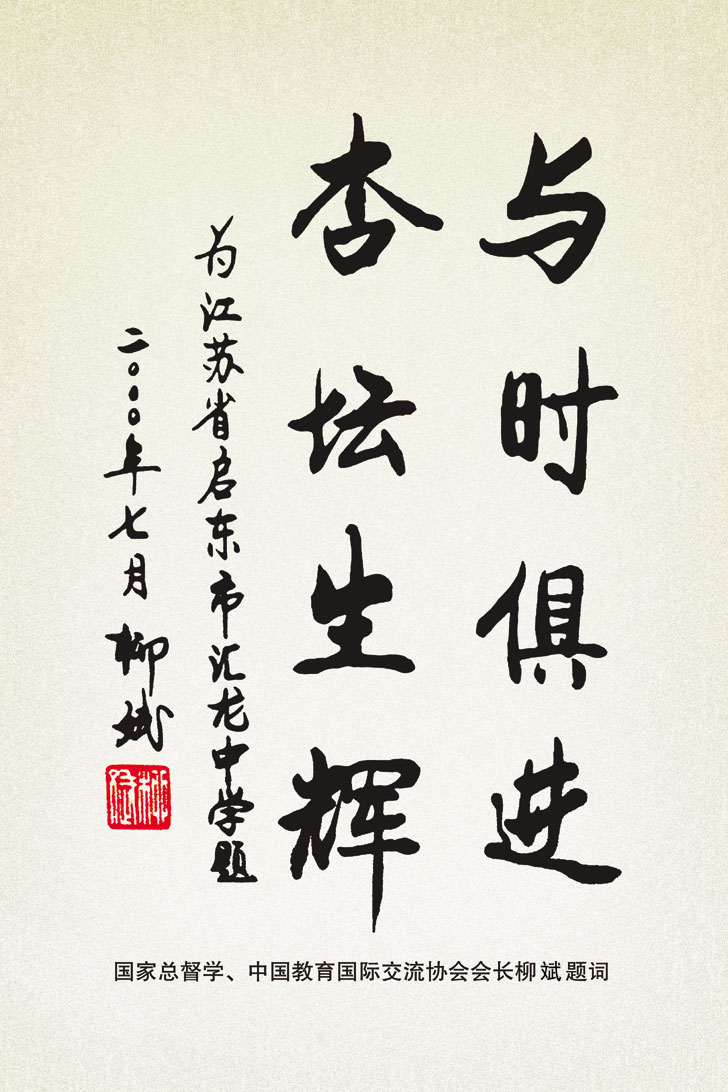 与时俱进
杏坛生辉
为江苏省启东市汇龙中学题
二〇〇〇年七月 柳斌
国家总督学、中国教育国际交流协会会长柳斌题词